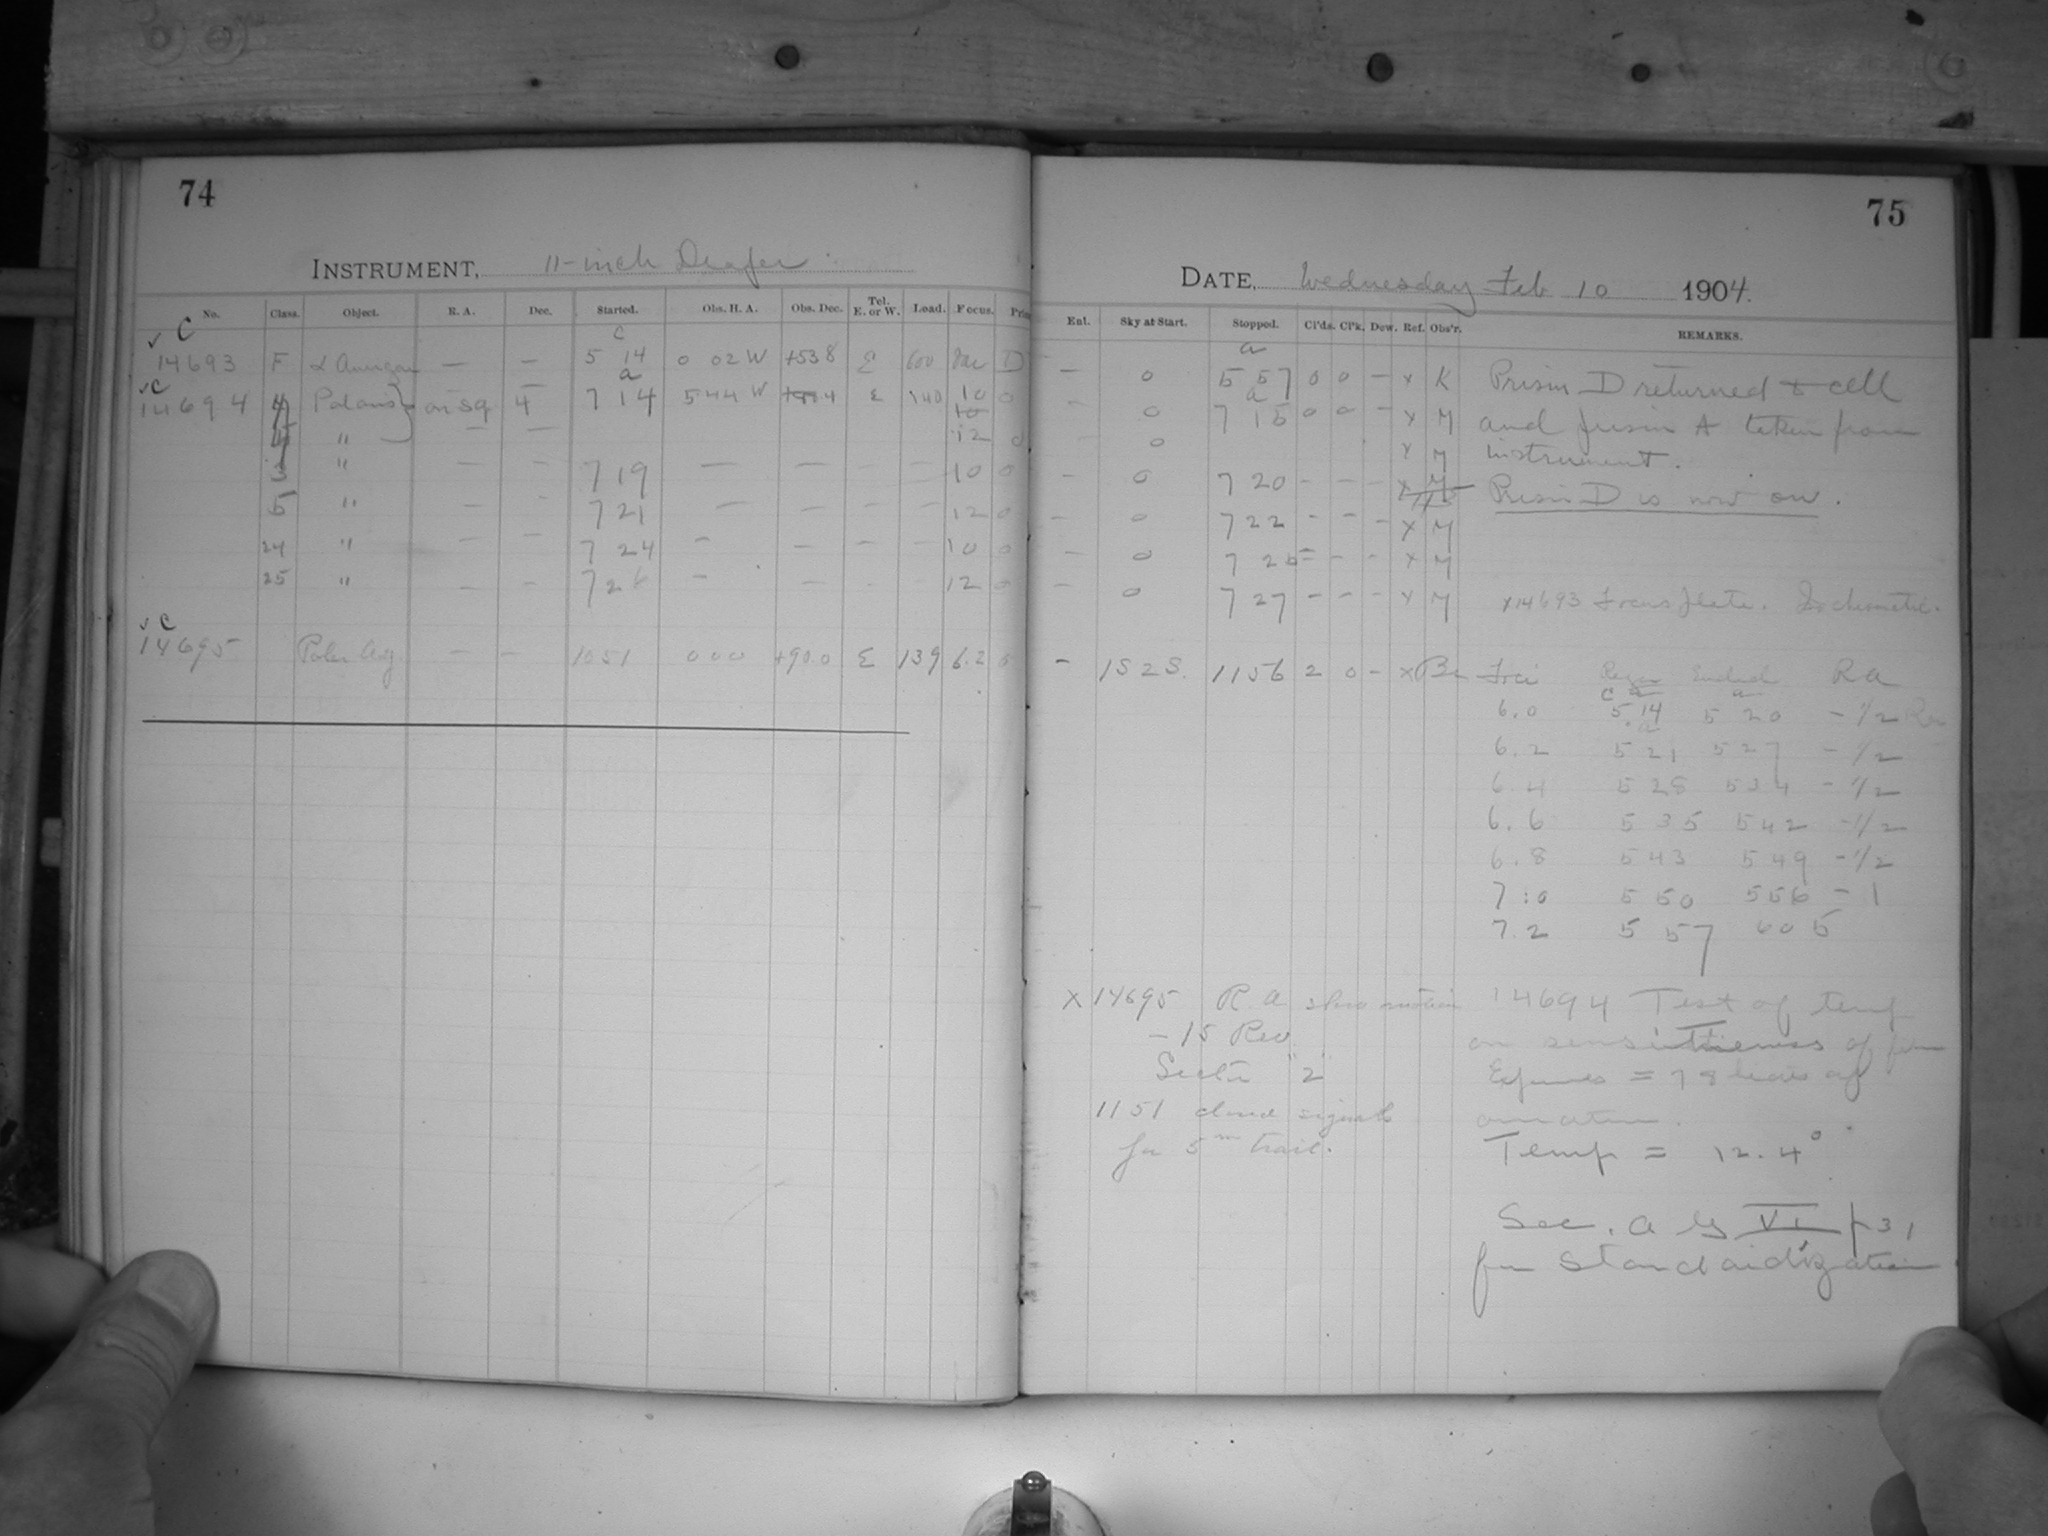 74
INSTRUMENT, 11-inch Draper
No. Class. Object. R. A. Dec. Started. Obs. H. A. Obs. Dec. Tel. E. or W. Load. Focus.
✓ C
c
14693 F α Aurigae — — 5 14 0 02 W +53 8 E 600 Var D
✓ C a
14694 4 Polaris on sq 4 7 14 5 44 W E 140 10 0
" — — 12 0
3 " — — 7 19 — — — — 10 0
5 " — — 7 21 — — — — 12 0
24 " — — 7 24 — — — — 10 0
25 " — — 7 26 — — — — 12 0
✓ C
14695 Polar Adj. — — 10 51 0 0 0 +90.0 E 139 6.2 0
75
DATE, Wednesday Feb 10 1904.
Enl. Sky at Start. Stopped. Cl'ds. Cl'k. Dew. Ref. Obs'r. REMARKS.
a
— 0 5 57 0 0 — x K Prism D returned to cell
a
— 0 7 15 0 0 — x M and prism A taken from
— 0 x M instrument.
— 0 7 20 — — — x M Prism D is now on.
— 0 7 22 — — — x M
— 0 7 25 — — — x M
— 0 7 27 — — — x M x14693 Focus plate. Isochromatic.
— 1S 2S. 11 56 2 0 — x Be Foci Began Ended R a
c a a
6.0 5 14 5 20 - 1/2 Rev
a
6.2 5 21 5 27 - 1/2
6.4 5 28 5 34 - 1/2
6.6 5 35 5 42 - 1/2
6.8 5 43 5 49 - 1/2
7.0 5 50 5 56 - 1
7.2 5 57 6 05
x 14695 R. a. slow motion
- 15 Rev
Sector "2"
11 51 closed signal
for 5m trail.
14694 Test of temp
on sensitiveness of
Exposures = 78 beats of
Temp = 12.4°
See. A G VI p 31
for Standardization